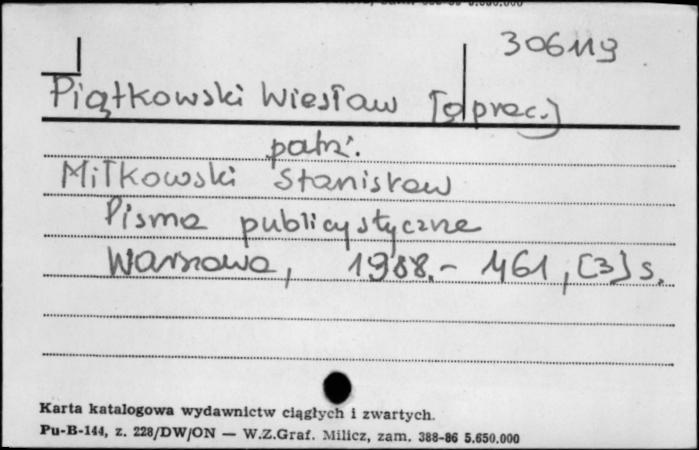 306119
Piątkowski Wiesław [oprac.]
patrz.
Miłkowski Stanisław
Pisma publicystyczne
Warszawa, 1988.- 461, [3] s.
Karta katalogowa wydawnictw ciągłych i zwartych.
Pu-B-144, z. 228/DW/ON — W.Z.Graf. Milicz, zam. 388-86 5.650.000